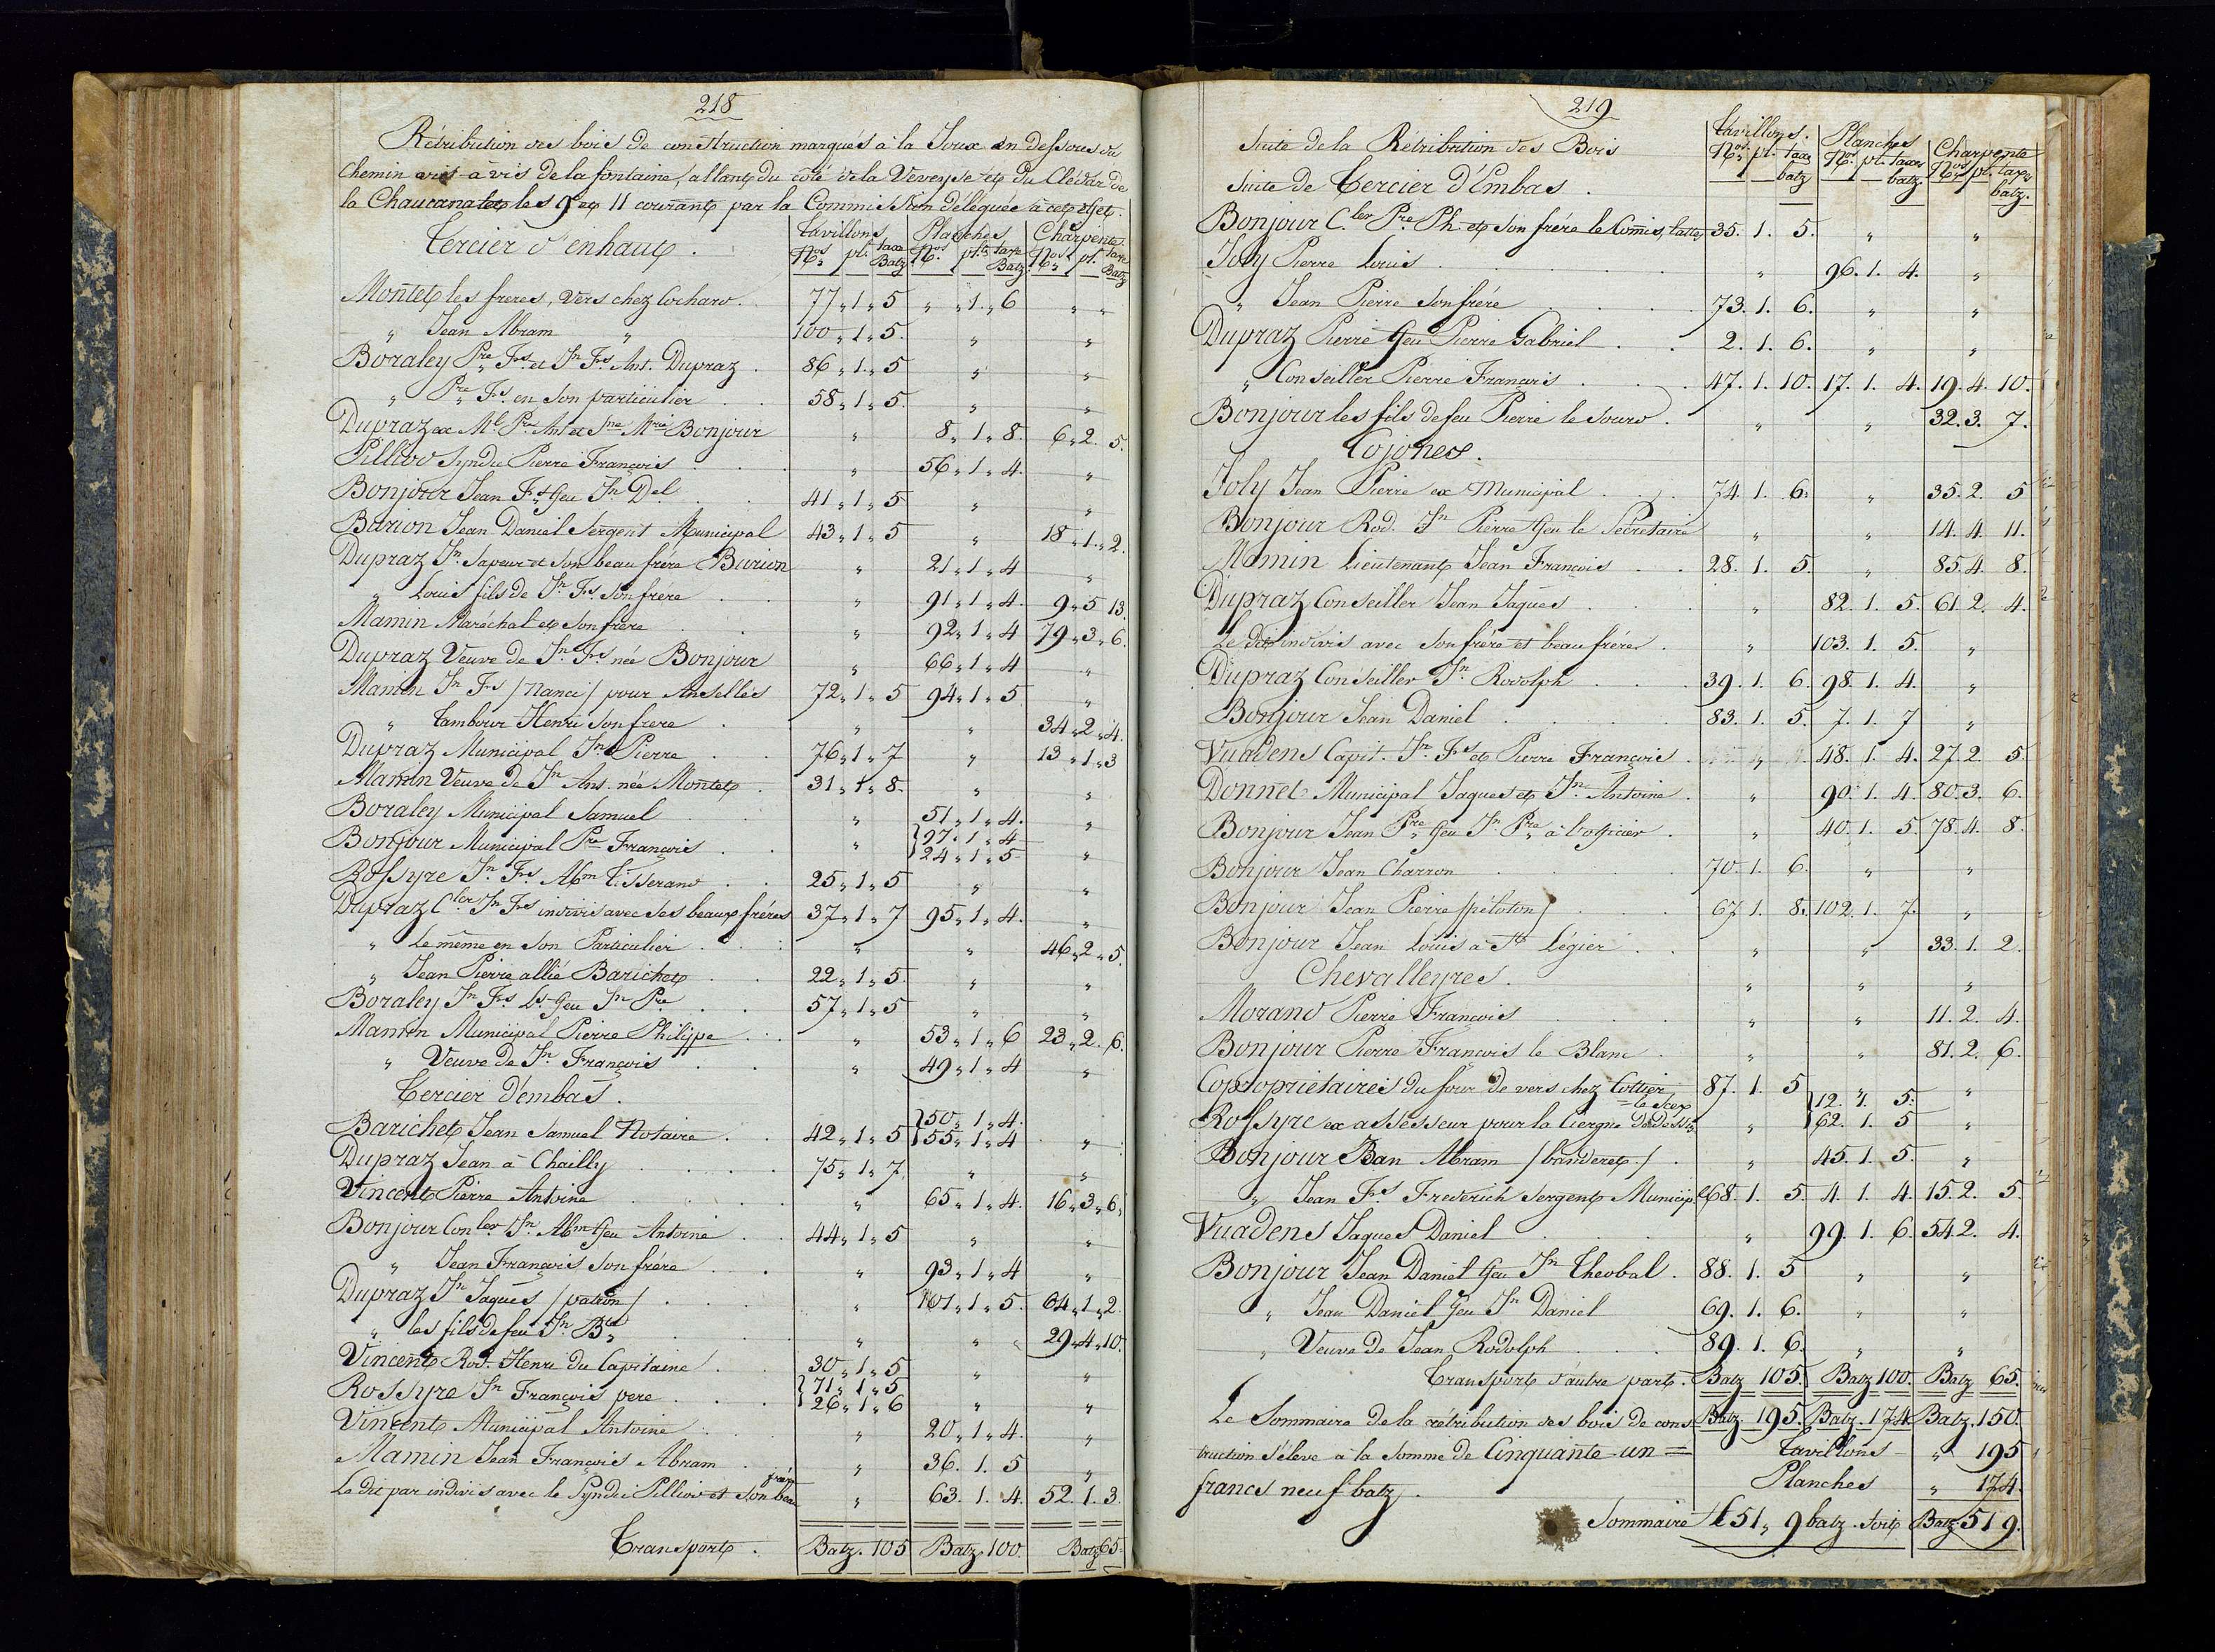 218
Rétribution des bois de construction marqués à la Joux en dessous du
Chemin vis-à vis de la fontaine, allant du coté de la Veveyse et du Clédar de
la les 9 et 11 courant par la Commission déléguée à cet éffet.
Tercier d'enhaut. Tavillons Planches Charpente
Nos. pl. taxe Batz. Nos. pl. taxe Batz. Nos. pl. taxe Batz
Montet les freres, vers chez Cochard. 77 " 1 " 5 " " 1 " 6 " "
" Jean Abram " 100 " 1 " 5. " "
Boraley Pre. Fs. et Jn Fs. Ant. Dupraz. 86 " 1 " 5 " "
" Pre. Fs. en son particulier . . 58 " 1 " 5. " "
Dupraz ex Ml. Pre. Ant et Mrie Bonjour " 8 " 1 " 8. 6 " 2. 5.
Pilliod Syndic Pierre François . . . " 56 " 1 " 4. "
Bonjour Jean Fs. feu Jn. Del. . . 41 " 1 " 5 " "
Burion Jean Daniel Sergent Municipal 43 " 1 " 5 " 18 " 1 " 2.
Dupraz Jn. Sapeur et son beau frére Burion " 21 " 1 " 4 "
" Louis fils de Jn. Fs. son frére . . " 91 " 1 " 4. 9 " 5 13.
Mamin Maréchal et son frére . . " 92 " 1 " 4 79 " 3 " 6.
Dupraz Veuve de Jn. Fs. née Bonjour " 66 " 1 " 4 "
Mamin Jn Fs / Nanci / pour Anselles 72 " 1 " 5 94 " 1 " 5 "
" Tambour Henri son frere . " " 34 " 2 " 4.
Dupraz Municipal Jn Pierre . . 76 " 1 " 7 " 13 " 1 " 3
Mamin Veuve de Jn Ant. née Montet. 31 " 1 " 8. " "
Boraley Municipal Samuel . . " 51 " 1 " 4. "
Bonjour Municipal Pre François . . " 97 " 1 " 4
24 " 1 " 5 "
Rossyre Jn. Fs. Abm Tisserand . . 25 " 1 " 5 " "
Dupraz Cler Jn Fs indivis avec ses beaux fréres 37 " 1 " 7 95 " 1 " 4. "
" Le même en son Particulier . . : " " 46 " 2 " 5.
" Jean Pierre allié Barichet . . 22 " 1 " 5 " "
Boraley Jn Fs Ls. feu Jn Pre . . 57 " 1 " 5 " "
Mamin Municipal Pierre Philippe . . " 53 " 1 " 6 23 " 2. 6.
" Veuve de Jn François . . " 49 " 1 " 4 "
Tercier d'embas.
50 " 1 " 4.
Barichet Jean Samuel Notaire . . 42 " 1 " 5 55 " 1 " 4 "
Dupraz Jean à Chailly . . . . 75 " 1 " 7. " "
Vincent Pierre Antoine . . . " 65 " 1 " 4. 16 " 3 " 6.
Bonjour Conler Jn Abm feu Antoine . . 44 " 1 " 5 " "
" Jean François son frére . . " 93 " 1 " 4 "
Dupraz Jn Jaques / patron / . . . " 101 " 1 " 5. 64 " 1 " 2.
" les fils de feu Jn. Bte . . . " " 29 " 4 " 10.
Vincent Rod. Henri du Capitaine . . 30 " 1 " 5 " "
Rossyre Jn François pere . . . 71 " 1 " 5
26 " 1 " 6 " "
Vincent Municipal Antoine . . . " 20 " 1 " 4. "
Mamin Jean François Abram . " 36. 1. 5 "
Le dit par indivis avec le Syndic Pilliod et son beau frére " 63. 1. 4. 52. 1. 3.
Transport. Batz. 105 Batz. 100. Batz 65.
219
Suite de la Rétribution des Bois Tavillons. Planches Charpente
Suite de Tercier d'Embas. Nos. pl. taxe batz Nos. pl. taxe batz. Nos. pl. taxe batz.
Bonjour Cler Pre. Ph. et son frére le Comis, lattes 35. 1. 5. " "
Joly Pierre Louis . . . . " 96. 1. 4. "
" Jean Pierre son frére . . . 73. 1. 6. " "
Dupraz Pierre feu Pierre Gabriel . . 2. 1. 6. " "
" Conseiller Pierre François . . . 47. 1. 10. 17. 1. 4. 19. 4. 10.
Bonjour les fils de feu Pierre le sourd . " " 32. 3. 7.
Cojonex.
Joly Jean Pierre ex Municipal . . . 74. 1. 6. " 35. 2. 5
Bonjour Rod. Jn Pierre feu le Secrétaire " " 14. 4. 11.
Mamin Lieutenant Jean François . . 28. 1. 5. " 85. 4. 8.
Dupraz Conseiller Jean Jaques . . . " 82. 1. 5. 61. 2. 4.
Le dit indivis avec son frére et beau frére . " 103. 1. 5. "
Dupraz Conseiller Jn. Rodolph . . . 39. 1. 6. 98. 1. 4. "
Bonjour Jean Daniel . . . . 83. 1. 5. 7. 1. 7 "
Vuadens Capit. Jn. Fs et Pierre François . " 48. 1. 4. 27. 2. 5.
Donnet Municipal Jaques et Jn. Antoine . " 90. 1. 4. 80. 3. 6.
Bonjour Jean Pre. feu Jn Pre. à l'officier . " 40. 1. 5. 78. 4. 8.
Bonjour Jean Charron . . . . 70. 1. 6. " "
Bonjour Jean Pierre / péloton / . . . 67. 1. 8. 102. 1. 7. "
Bonjour Jean Louis à St. Légier . . " " 33. 1. 2.
Chevalleyres. " " "
Morand Pierre François . . . " " 11. 2. 4.
Bonjour Pierre François le Blanc . " " 81. 2. 6.
Copropriétaires du four de vers chez Cottier 87. 1. 5 " "
= le Scex 12. 1. 5.
Rossyre ex assesseur pour la Cergne dudessus " 62. 1. 5 "
Bonjour Ban Abram / banderet / . " 45. 1. 5. "
" Jean Fs Frederich Sergent Municipl 68. 1. 5. 4. 1. 4. 15. 2. 5.
Vuadens Jaques Daniel . . . . " 99. 1. 6. 54. 2. 4.
Bonjour Jean Daniel feu Jn Theobal . 88. 1. 5 " "
" Jean Daniel feu Jn Daniel 69. 1. 6. " "
" Veuve de Jean Rodolph . . . 89. 1. 6. " "
Transport d'autre part. Batz 105. Batz 100. Batz 65.
Le Sommaire de la rétribution des bois de cons Batz. 195. Batz. 174. Batz. 150.
truction s'éleve à la somme de Cinquante-un = Tavillons " 195
francs neuf batz. Planches " 174.
Sommaire £ 51 " 9 batz. soit Batz 519.